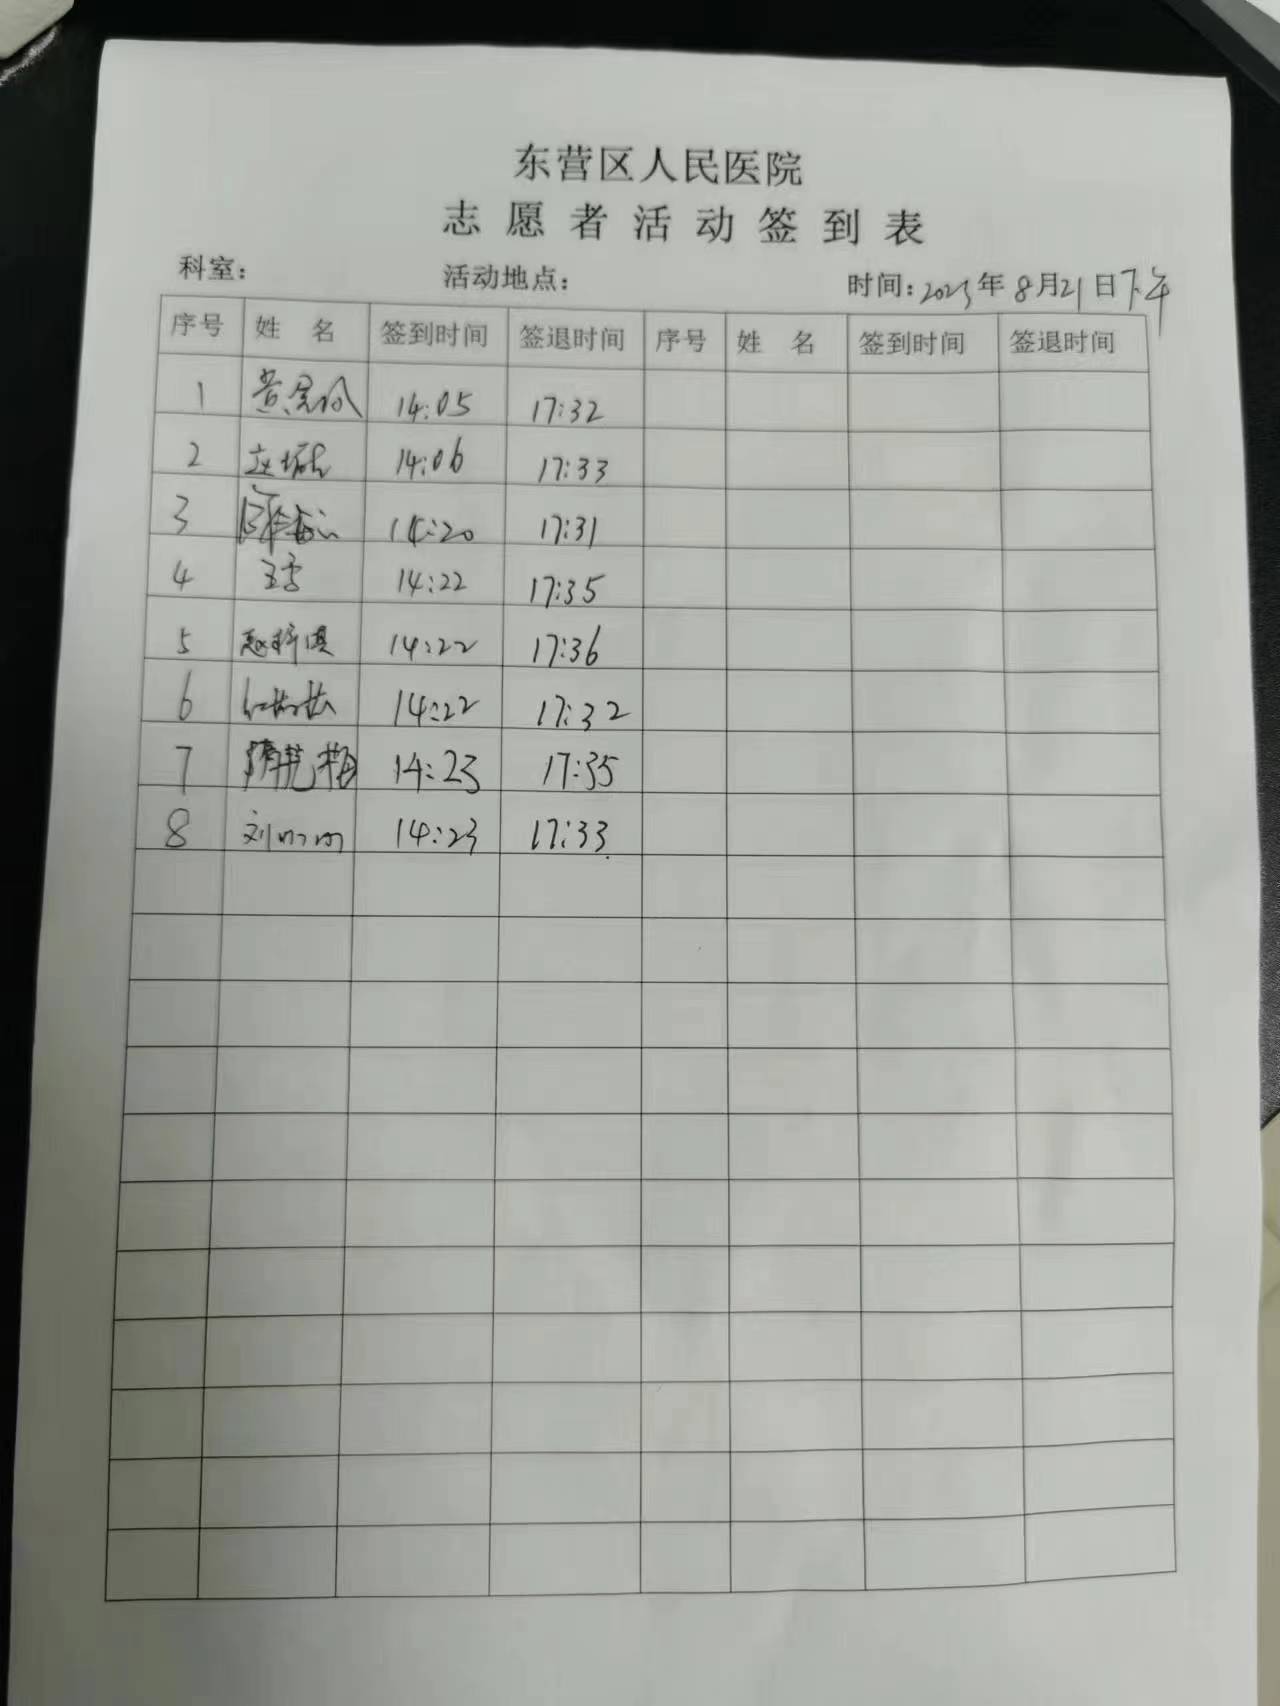 东营区人民医院
志愿者活动签到表
科室： 活动地点： 时间：2023年8月21日下午
序号 姓名 签到时间 签退时间 序号 姓名 签到时间 签退时间
1 14:05 17:32
2 14:06 17:33
3 14:20 17:31
4 14:22 17:35
5 14:22 17:36
6 14:22 17:32
7 隋艳梅 14:23 17:35
8 刘明明 14:23 17:33